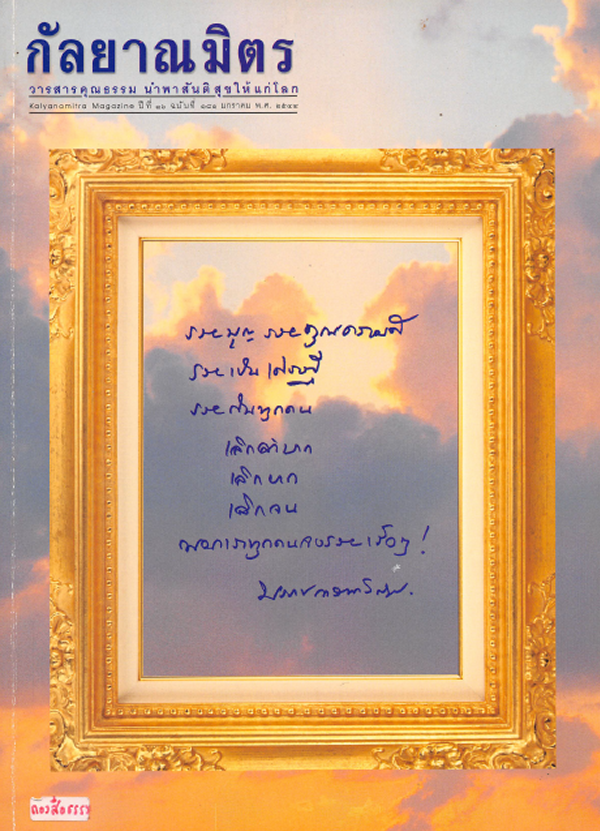 กัลยาณมิตร
วารสารคุณธรรม นำพาสันติสุขให้แก่โลก
Kalyanamitra Magazine ปีที่ ๑๖ ฉบับที่ ๑๘๑ มกราคม พ.ศ. ๒๕๔๔
รวยบุญ รวยคุณความดี
รวยเป็นเศรษฐี
รวยกันทุกคน
เลิกลำบาก
เลิกยาก
เลิกจน
ทุกคนจงรวยเรื่อยๆ!